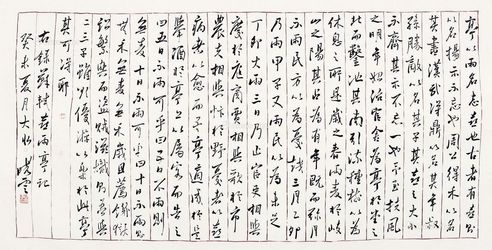 亭以雨名志喜也古者有喜則
以名物示不忘也周公得禾以名
其書漢武得鼎以名其年叔
孫勝敵以名其子其喜之大小
不齊其示不忘一也予至扶風
之明年始治官舍為亭於堂之
北而鑿池其南引流種樹以為
休息之所是歲之春雨麥於岐
山之陽其占為有年既而彌月
不雨民方以為憂越三月乙卯
乃雨甲子又雨民以為未足
丁卯大雨三日乃止官吏相與
慶於庭商賈相與歌於市
農夫相與忭於野憂者以喜
病者以愈而吾亭適成於是
舉酒於亭上以屬客而告之
曰五日不雨可乎曰五日不雨則
無麥十日不雨可乎曰十日不雨則
無禾無麥無禾歲且薦饑獄
訟繁興而盜賊滋熾則吾與
二三子雖欲優游以樂於此亭
其可得耶
右錄蘇軾喜雨亭記
癸未夏月大怡